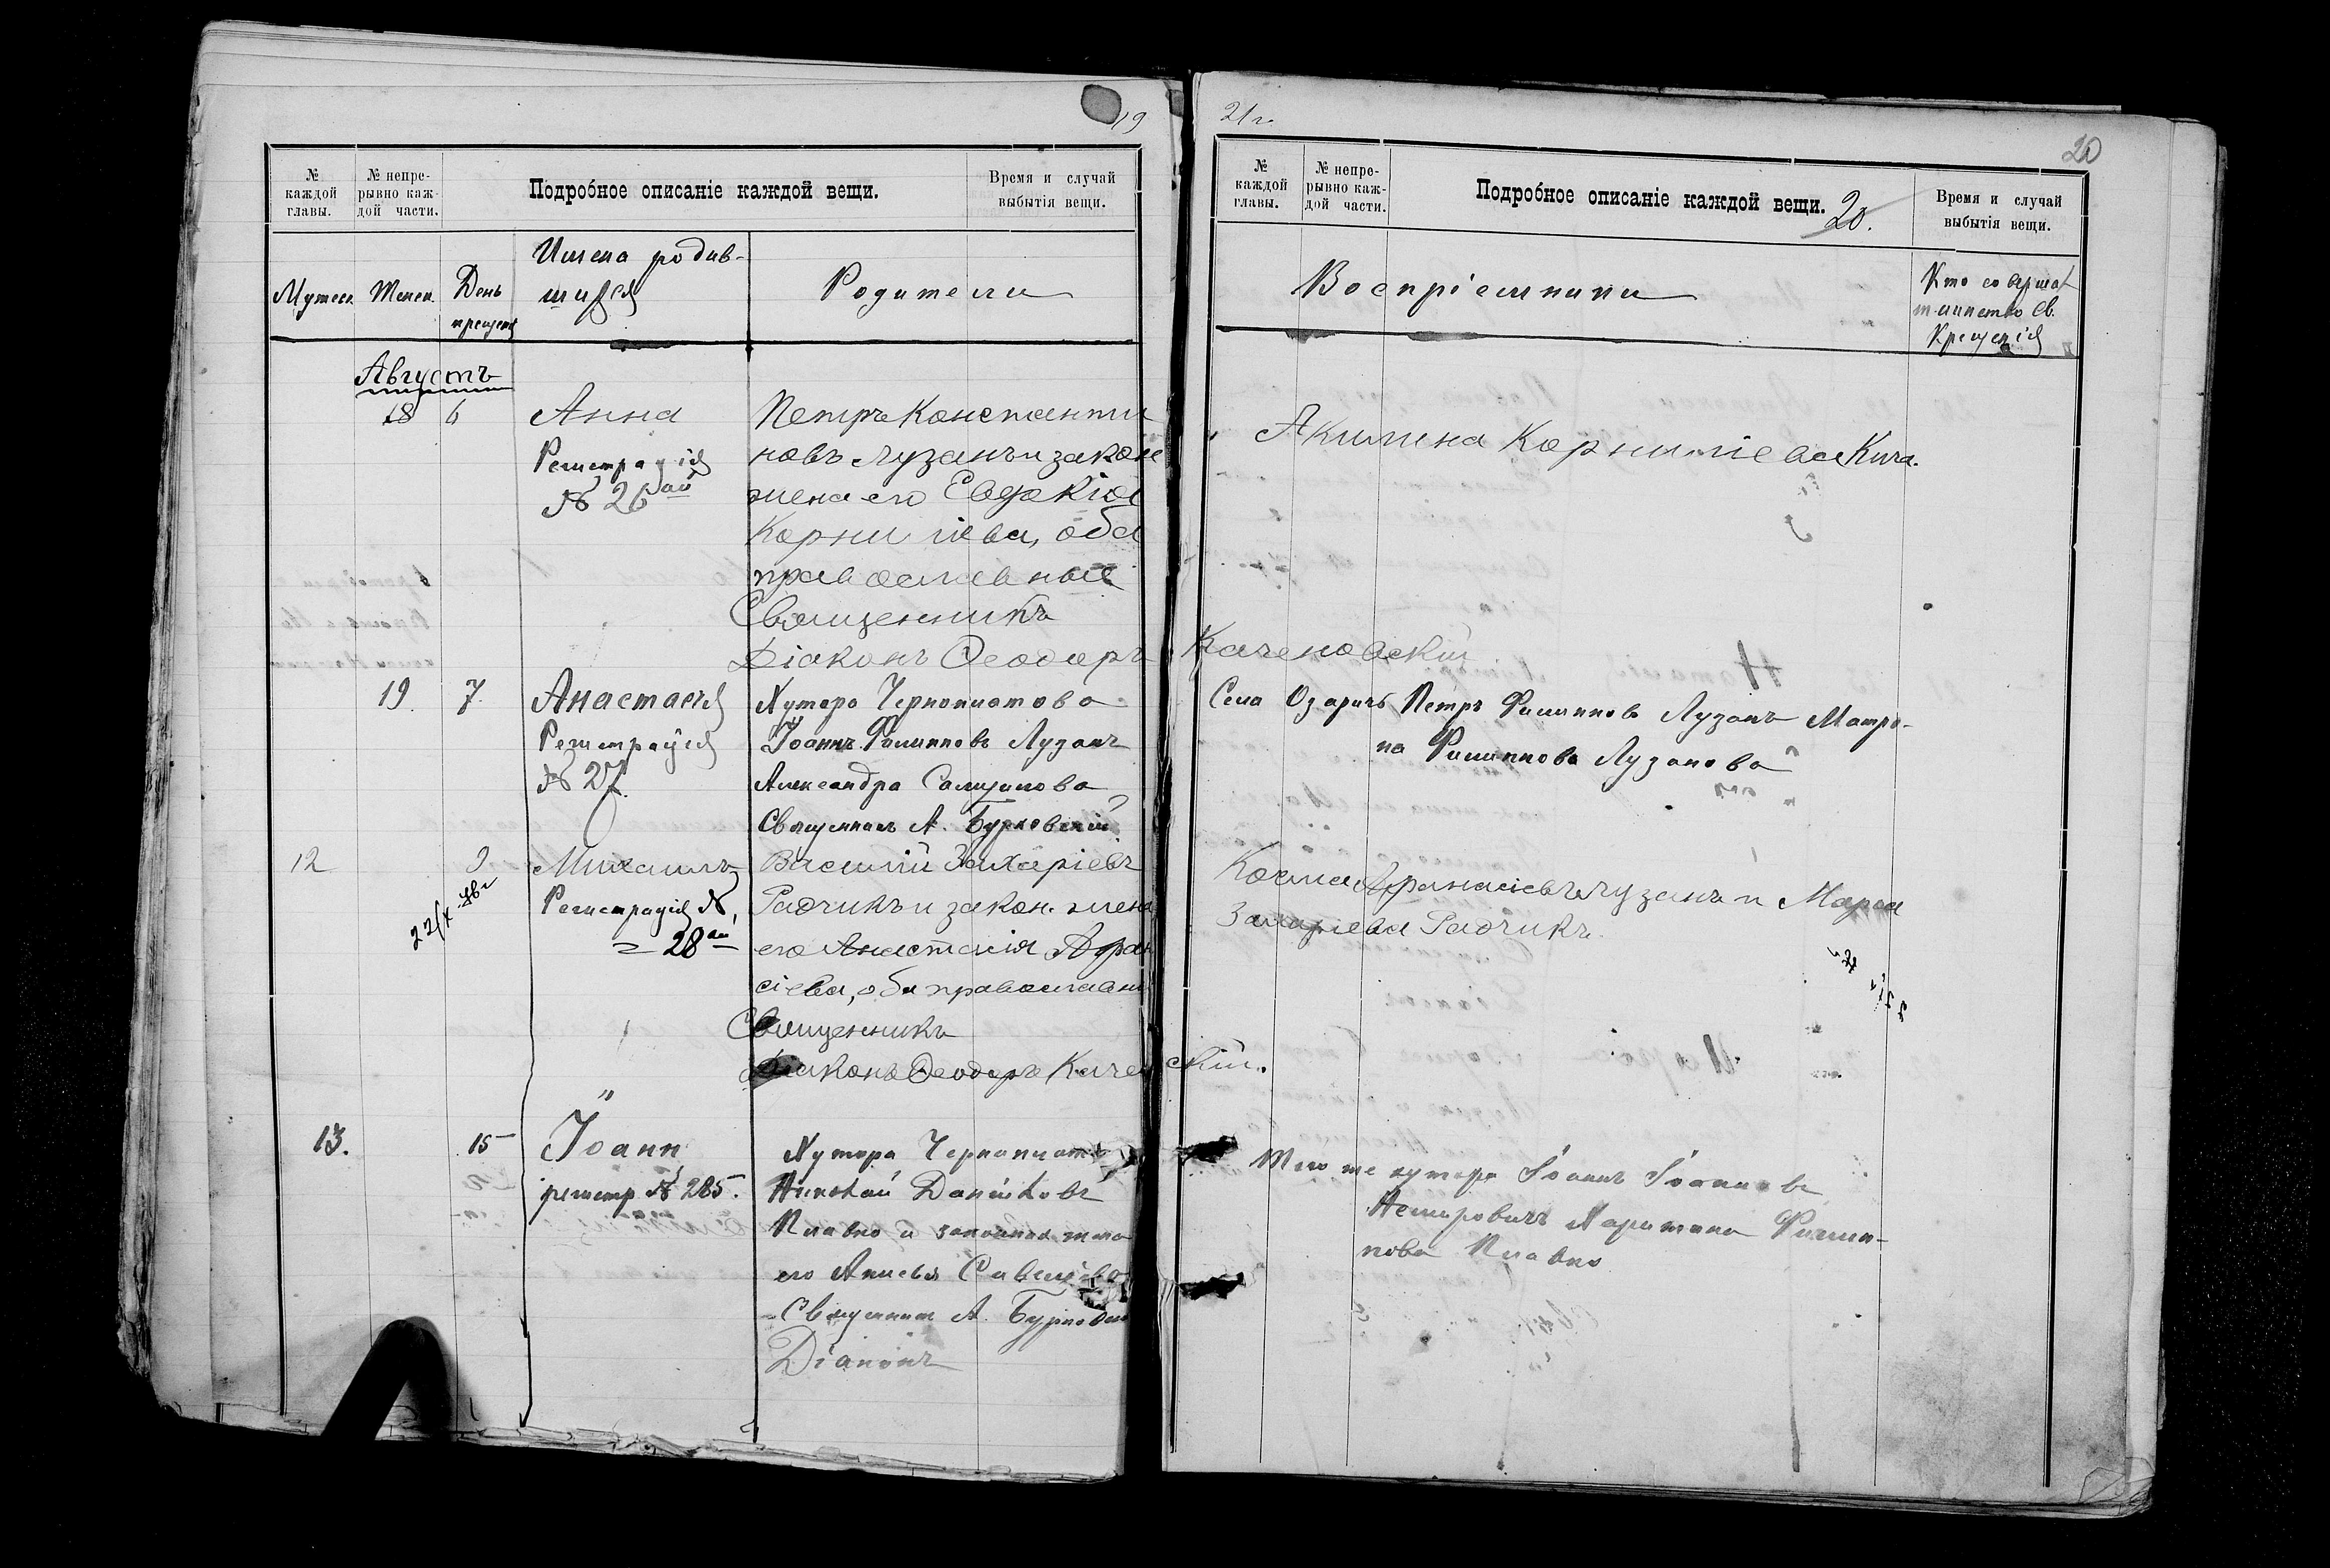 19
№ каждой главы.
№ непрерывно каждой части.
Подробное описаніе каждой вещи.
Время и случай выбытія вещи.
Мужеск. Женск. День крещенія
Имена родив-
шихся
Родители
Августъ
18 6 Анна
Регистрація
№ 26
Петръ Константи
новъ Лузанъ и закон
жена его Евдокія
Корниліева, оба
православные
Священникъ
Діаконъ Ѳеодоръ Каченовскій
19. 7. Анастасія
Регистрація
№ 27.
Хутора Чернопиотова
Іоаннъ Филипповъ Лузанъ
Александра
Священникъ А. Бурковскій
12 9 Михаилъ
Регистрація №,
= 28
Василій Захаріевъ
Радчикъ и закон. жена
его Анастасія Афан
сіева, оба православн
Священникъ
Діаконъ Ѳеодоръ Каче скій.
13. 15 Іоанн
регистр № 285.
Хутора
Николай Даниловъ
Плавко и законная жена
его
Священник А.
Діаконъ
21 г.
20
№ каждой главы.
№ непрерывно каждой части.
Подробное описаніе каждой вещи.
20.
Время и случай выбытія вещи.
Воспріемники
Кто соверш
таинство Св.
Крещенія
Акилина Корниліева
Села Озаричъ Петръ Филипповъ Лузанъ Матро-
на Филиппова Лузанова
Косма Афанасіевъ Лузанъ и Марія
Захаріева Радчикъ
Того же хутора Іоаннъ Іоанновъ
Немировичъ Харитина Филип-
пова Плавко